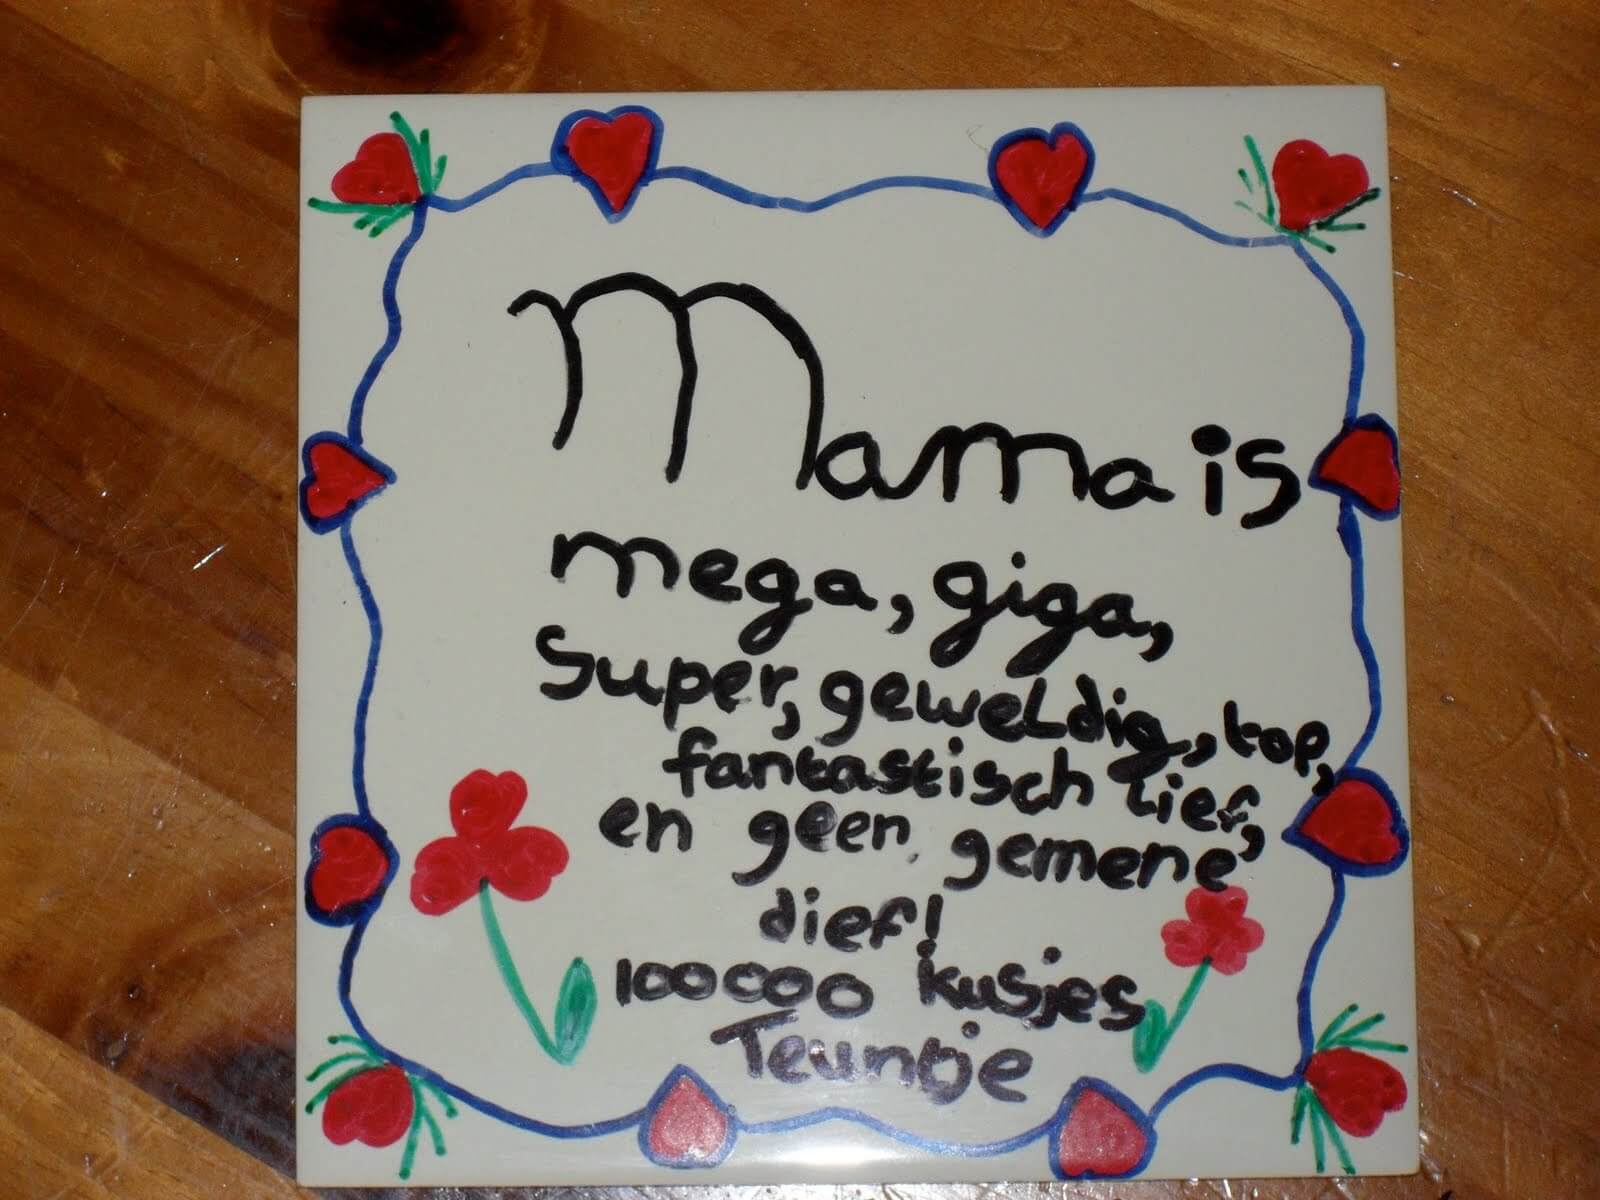 Mama is
mega, giga,
Super, geweldig, top,
fantastisch lief,
en geen gemene
dief!
100000 kusjes
Teuntje